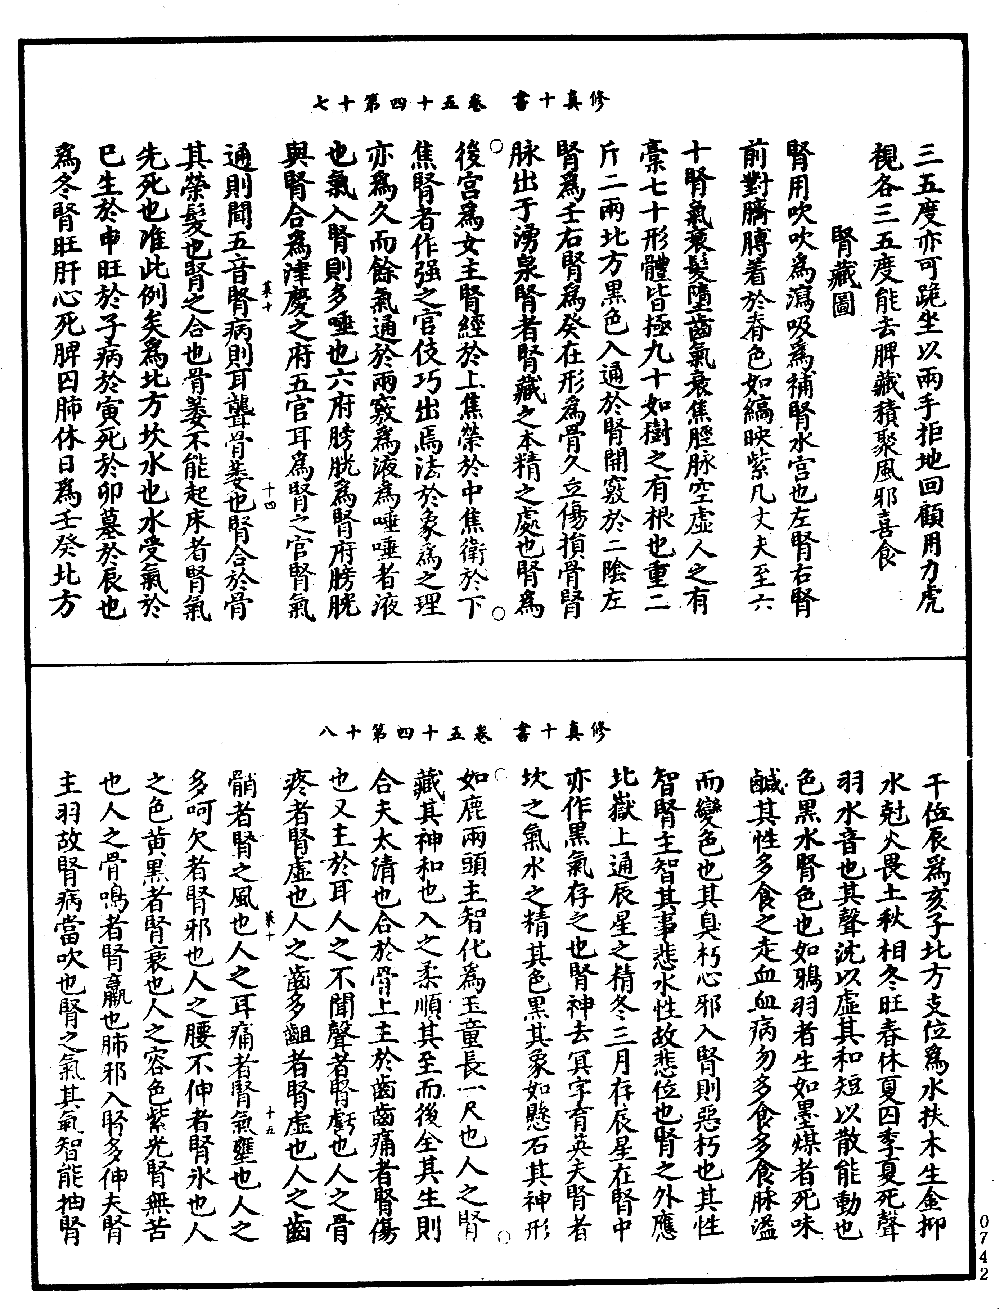 修真十書 卷五十四第十七
三五度亦可跪坐以兩手拒地回顧用力虎
視各三五度能去脾藏積聚風邪喜食
腎藏圖
腎用吹吹為瀉吸為補腎水宮也左腎右腎
前對臍膊着於脊色如縞映紫凡丈夫至六
十腎氣衰髮墮齒氣衰焦脛脉空虛人之有
藁七十形體皆極九十如樹之有根也重二
斤二兩北方黑色入通於腎開竅於二陰左
腎為壬右腎為癸在形為骨久立傷損骨腎
脉出于湧泉腎者腎藏之本精之處也腎為
後宮為女主腎經於上焦榮於中焦衛於下
焦腎者作强之官伎巧出焉法於象為之理
亦為久而餘氣通於兩竅為液為唾唾者液
也氣入腎則多唾也六府膀胱為腎府膀胱
與腎合為津慶之府五官耳為腎之官腎氣
通則聞五音腎病則耳聾骨萎也腎合於骨
其榮髮也腎之合也骨萎不能起床者腎氣
先死也准此例矣為北方坎水也水受氣於
巳生於申旺於子病於寅死於卯墓於辰也
為冬腎旺肝心死脾囚肺休日為壬癸北方
菜十
十四
修真十書 卷五十四第十八
干位辰為亥子北方支位為水扶木生金抑
水尅火畏土秋相冬旺春休夏囚季夏死聲
羽水音也其聲沈以虛其和短以散能動也
色黑水腎色也如鴉羽者生如墨煤者死味
鹹其性多食之走血血病勿多食多食脉溢
而變色也其臭朽心邪入腎則惡朽也其性
智腎主智其事悲水性故悲位也腎之外應
北嶽上通辰星之精冬三月存辰星在腎中
亦作黑氣存之也腎神去冥字有英夫腎者
坎之氣水之精其色黑其象如懸石其神形
如鹿兩頭主智化為玉童長一尺也人之腎
藏其神和也入之柔順其至而後全其生則
合夫太清也合於骨上主於齒齒痛者腎傷
也又主於耳人之不聞聲者腎虧也人之骨
疼者腎虛也人之齒多齟者腎虛也人之齒
䯚者腎之風也人之耳痛者腎氣壅也人之
多呵欠者腎邪也人之腰不伸者腎氷也人
之色黃黑者腎衰也人之容色紫光腎無苦
也人之骨鳴者腎羸也肺邪入腎多伸夫腎
主羽故腎病當吹也腎之氣其氣智能抽腎
菜十
十五
0742